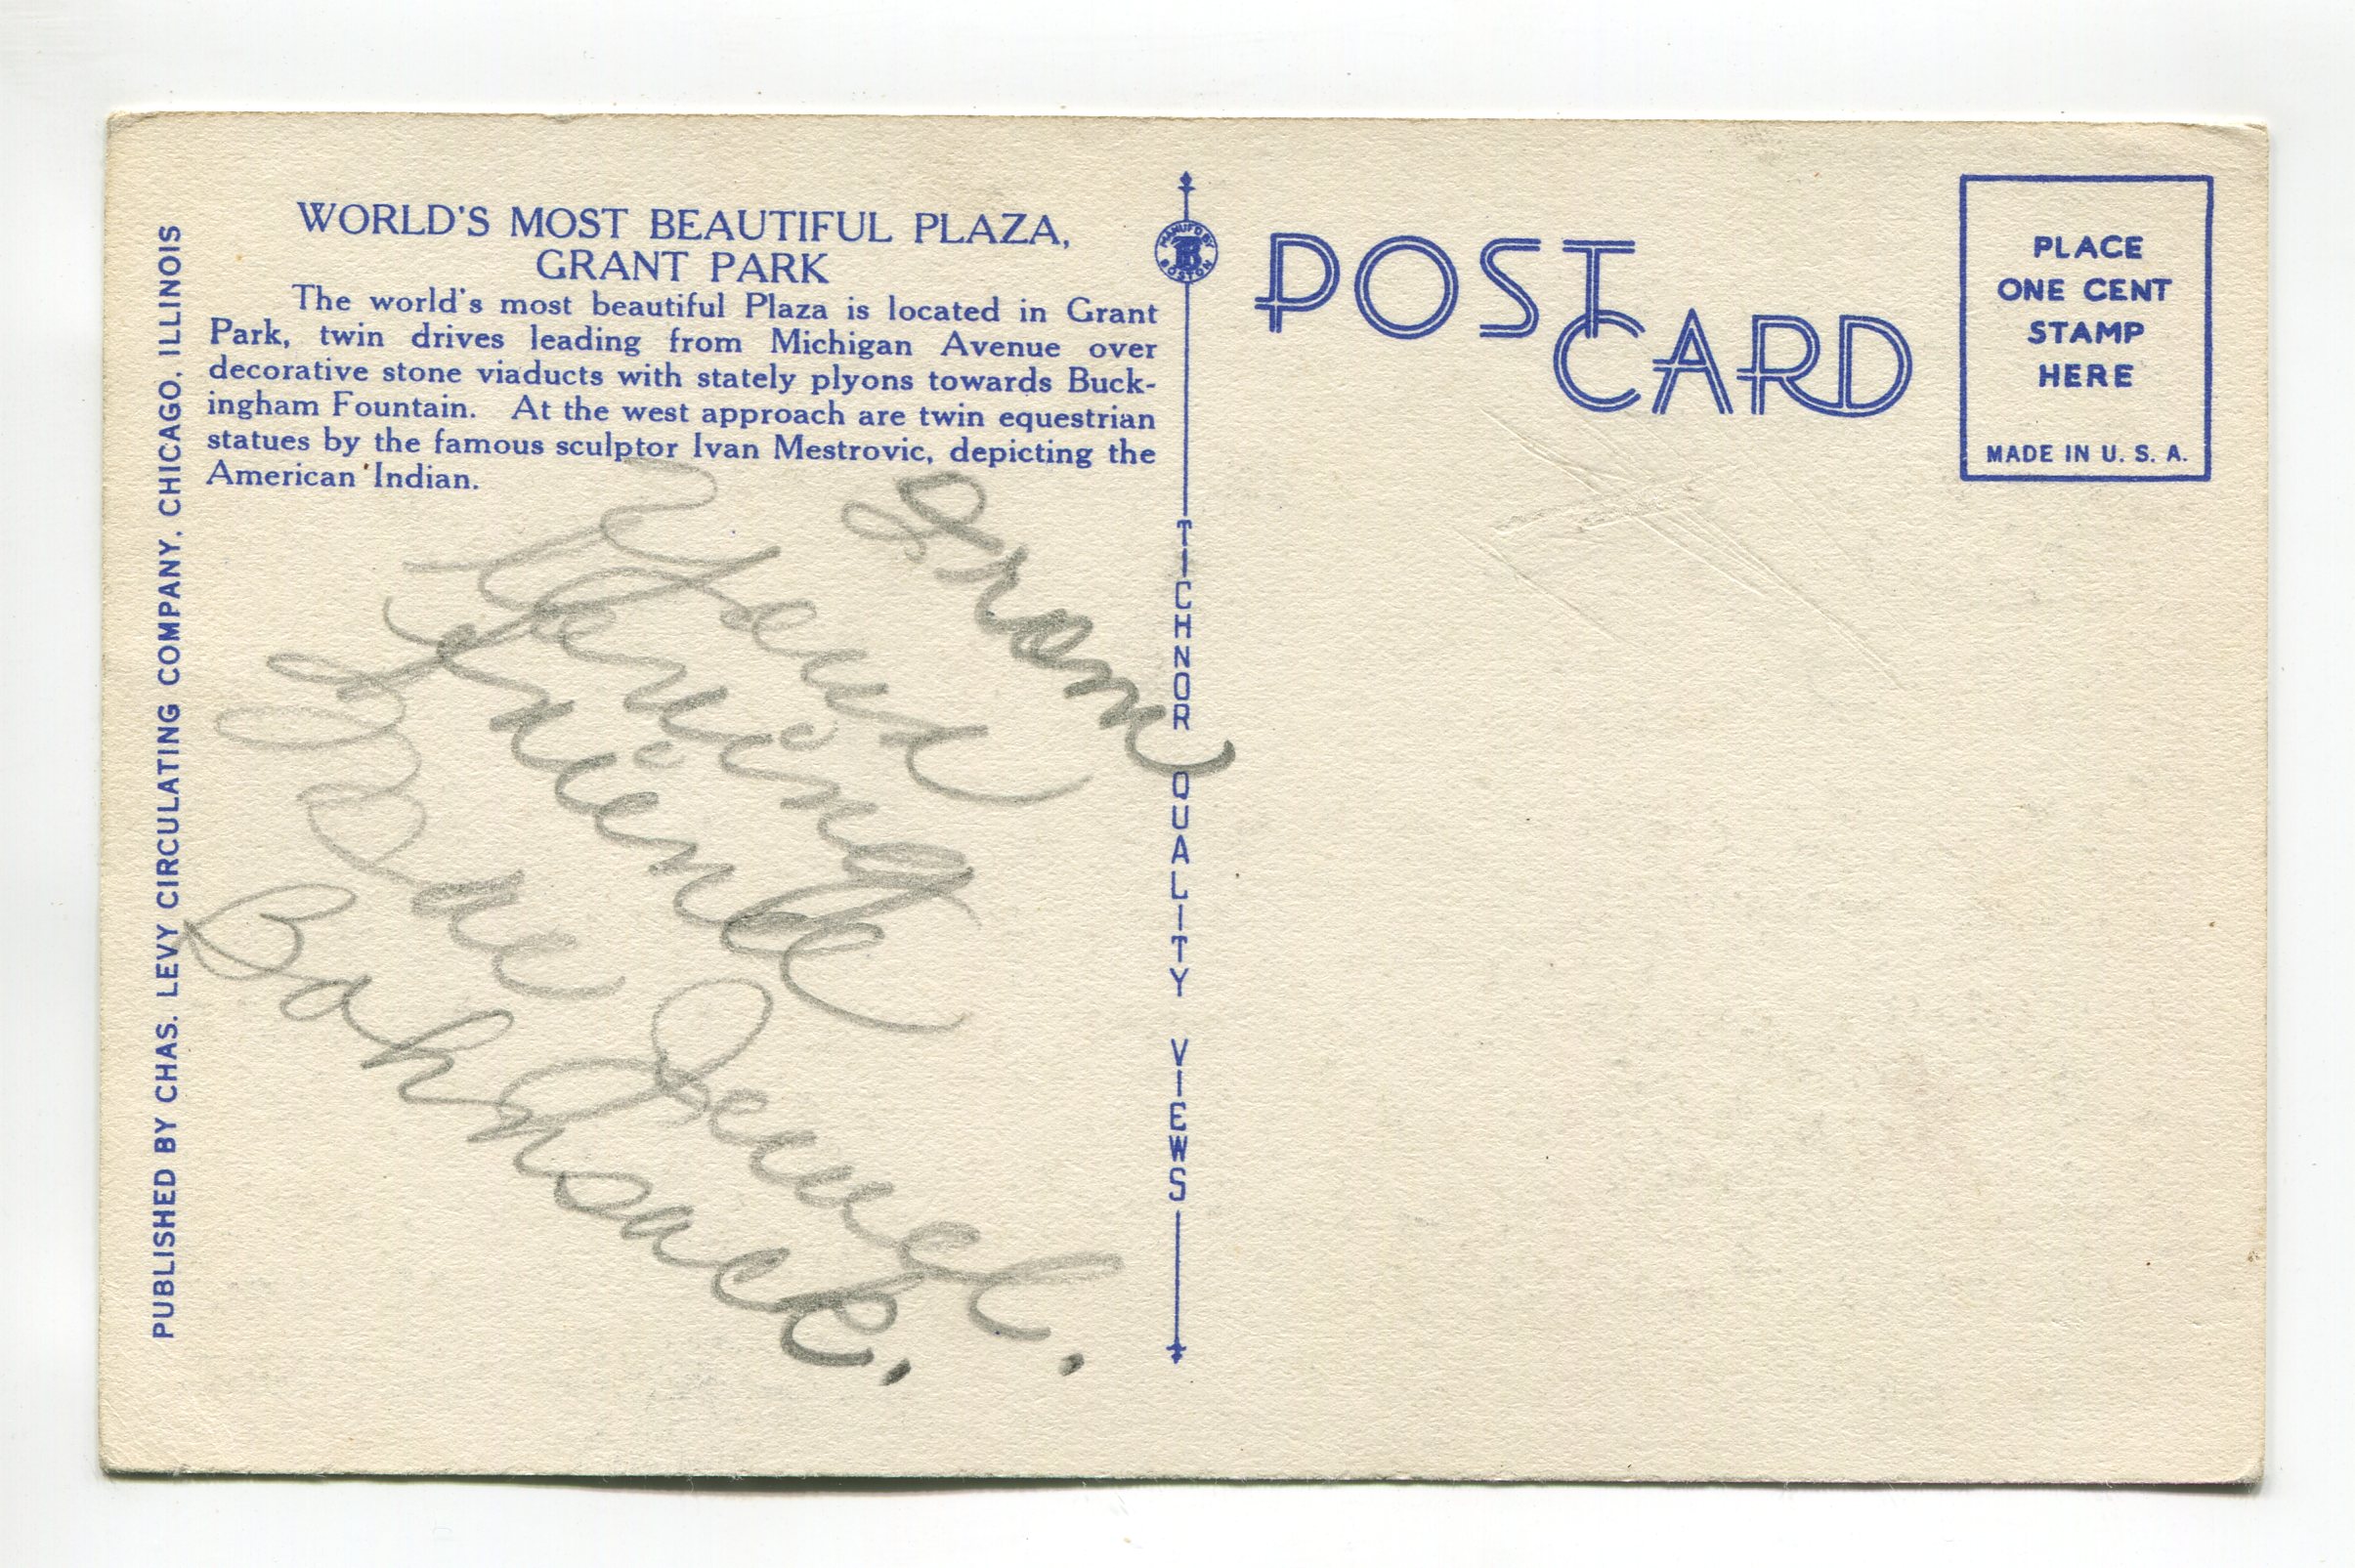 WORLD'S MOST BEAUTIFUL PLAZA,
GRANT PARK
The world's most beautiful Plaza is located in Grant
Park, twin drives leading from Michigan Avenue over
decorative stone viaducts with stately plyons towards Buck-
ingham Fountain. At the west approach are twin equestrian
statues by the famous sculptor Ivan Mestrovic, depicting the
American Indian.
From
Your
Loving
Friend
Rae Jewel.
Bahnsack.
PUBLISHED BY CHAS. LEVY CIRCULATING COMPANY, CHICAGO, ILLINOIS
MANUF'D BY
TB
BOSTON
TICHNOR QUALITY VIEWS
POST CARD
PLACE
ONE CENT
STAMP
HERE
MADE IN U. S. A.